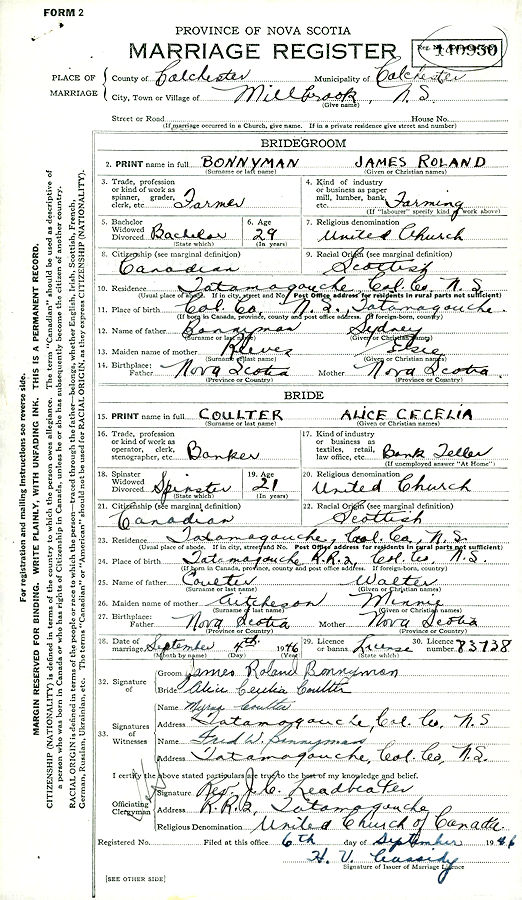 FORM 2
PROVINCE OF NOVA SCOTIA
MARRIAGE REGISTER
Reg. No. 140930
PLACE OF MARRIAGE
County of Colchester Municipality of Colchester
City, Town or Village of Millbrook, N.S.
(Give name)
Street or Road House No.
(If marriage occurred in a Church, give name. If in a private residence give street and number)
BRIDEGROOM
2. PRINT name in full BONNYMAN JAMES ROLAND
(Surname or last name) (Given or Christian names)
3. Trade, profession or kind of work as spinner, grader, clerk, etc. Farmer
4. Kind of industry or business as paper mill, lumber, bank, etc. Farming
(If "labourer" specify kind of work above)
5. Bachelor Widowed Divorced Bachelor (State which)
6. Age 29 (In years)
7. Religious denomination United Church
8. Citizenship (see marginal definition) Canadian
9. Racial Origin (see marginal definition) Scottish
10. Residence Tatamagouche, Col. Co. N.S.
(Usual place of abode. If in city, street and No. Post Office address for residents in rural parts not sufficient)
11. Place of birth Col. Co. N.S., Tatamagouche.
(If born in Canada, province, county and post office address. If foreign-born, country)
12. Name of father Bonnyman Sydney
(Surname or last name) (Given or Christian names)
13. Maiden name of mother Reeves Elsie
(Surname or last name) (Given or Christian names)
14. Birthplace: Father Nova Scotia Mother Nova Scotia.
(Province or Country) (Province or Country)
BRIDE
15. PRINT name in full COULTER ALICE CECELIA
(Surname or last name) (Given or Christian names)
16. Trade, profession or kind of work as operator, clerk, stenographer, etc. Banker
17. Kind of industry or business as textiles, retail, law office, etc. Bank Teller
(If unemployed answer "At Home")
18. Spinster Widowed Divorced Spinster (State which)
19. Age 21 (In years)
20. Religious denomination United Church
21. Citizenship (see marginal definition) Canadian
22. Racial Origin (see marginal definition) Scottish
23. Residence Tatamagouche, Col. Co, N.S.
(Usual place of abode. If in city, street and No. Post Office address for residents in rural parts not sufficient)
24. Place of birth Tatamagouche R.R.2, Col. Co. N.S.
(If born in Canada, province, county and post office address. If foreign-born, country)
25. Name of father Coulter Walter
(Surname or last name) (Given or Christian names)
26. Maiden name of mother Aitcheson Minnie
(Surname or last name) (Given or Christian names)
27. Birthplace: Father Nova Scotia Mother Nova Scotia
(Province or Country) (Province or Country)
28. Date of marriage September 4th 1946
(Month by name) (Day) (Year)
29. Licence or banns License (State which)
30. Licence number 73738
32. Signature of
Groom James Roland Bonnyman
Bride Alice Cecilia Coulter
33. Signatures of Witnesses
Name Coulter
Address Tatamagouche, Col. Co. N.S
Name Fred W. Bonnyman
Address Tatamagouche, Col. Co, N.S.
I certify the above stated particulars are true to the best of my knowledge and belief.
Officiating Clergyman
Signature Rev. J. C. Leadbeater
Address R.R.2, Tatamagouche
Religious Denomination United Church of Canada.
Registered No. Filed at this office 6th day of September 1946
H. V. Cassidy
Signature of Issuer of Marriage Licence
[SEE OTHER SIDE]
For registration and mailing instructions see reverse side.
MARGIN RESERVED FOR BINDING. WRITE PLAINLY, WITH UNFADING INK. THIS IS A PERMANENT RECORD.
CITIZENSHIP (NATIONALITY) is defined in terms of the country to which the person owes allegiance. The term "Canadian" should be used as descriptive of
a person who was born in Canada or who has rights of Citizenship in Canada, unless he or she has subsequently become the citizen of another country.
RACIAL ORIGIN is defined in terms of the people or race to which the person—traced through the father—belongs, whether English, Irish, Scottish, French,
German, Russian, Ukrainian, etc. The terms "Canadian" or "American" should not be used for RACIAL ORIGIN, as they express CITIZENSHIP (NATIONALITY).